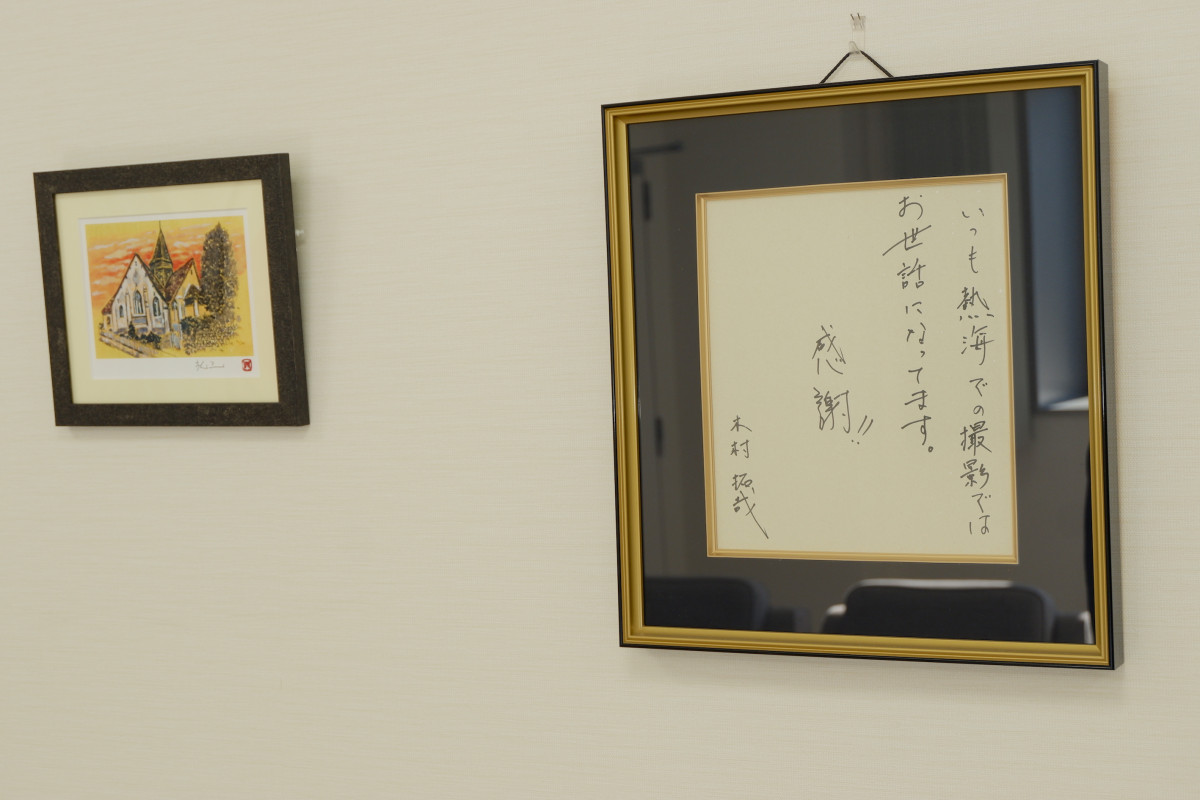 いつも熱海での撮影では
お世話になってます。
感謝!!
木村拓哉